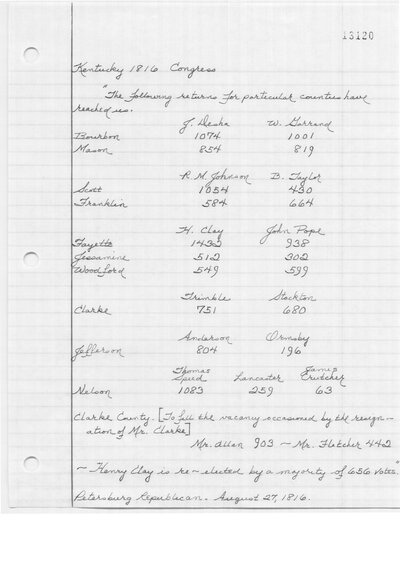 13120
Kentucky 1816 Congress
"The following returns for particular counties have
reached us.
J. Desha W. Garrard
Bourbon 1074 1001
Mason 854 819
R. M. Johnson B. Taylor
Scott 1054 430
Franklin 584 664
H. Clay John Pope
Fayette 1432 938
Jessamine 512 302
Woodford 549 599
Trimble Stockton
Clarke 751 680
Anderson Ormsby
Jefferson 804 196
Thomas James
Speed Lancaster Crutcher
Nelson 1083 259 63
Clarke County. [To fill the vacancy occasioned by the resign-
ation of Mr. Clarke]
Mr. Allen 903 ~ Mr. Fletcher 442
~ Henry Clay is re-elected by a majority of 656 votes."
Petersburg Republican. August 27, 1816.